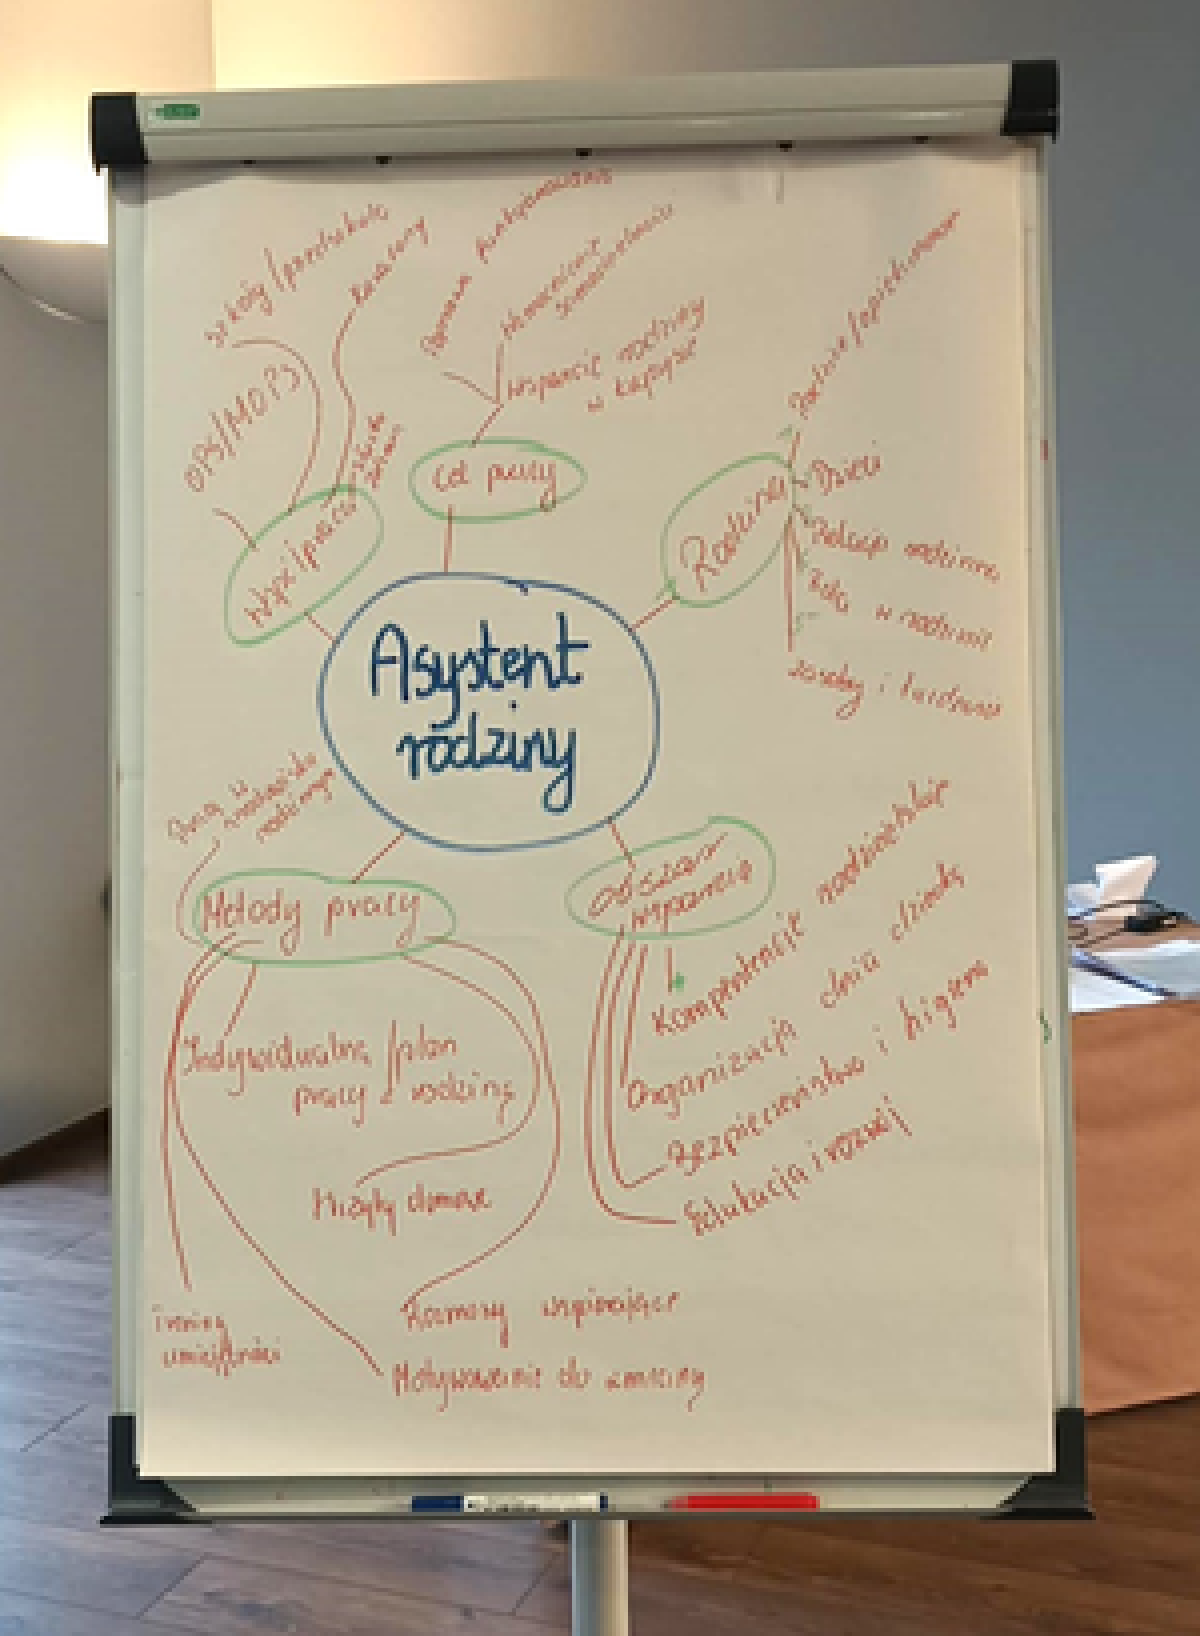 szkoły/przedszkola
kuratorzy
OPS/MOPS
Współpraca
Poprawa funkcjonowania
Wzmocnienie
samodzielności
Wsparcie rodziny
w kryzysie
Cel pracy
Rodzina
Rodzice/opiekunowie
Dzieci
Relacje rodzinne
Role w rodzinie
zasoby i
Asystent
rodziny
Praca w
środowisku
rodzinnym
Metody pracy
Indywidualny plan
pracy z rodziną
Wizyty domowe
Rozmowy wspierające
Motywowanie do zmiany
trening
umiejętności
Obszary
wsparcia
Kompetencje rodzicielskie
Organizacja dnia
Bezpieczeństwo i higiena
Edukacja i rozwój